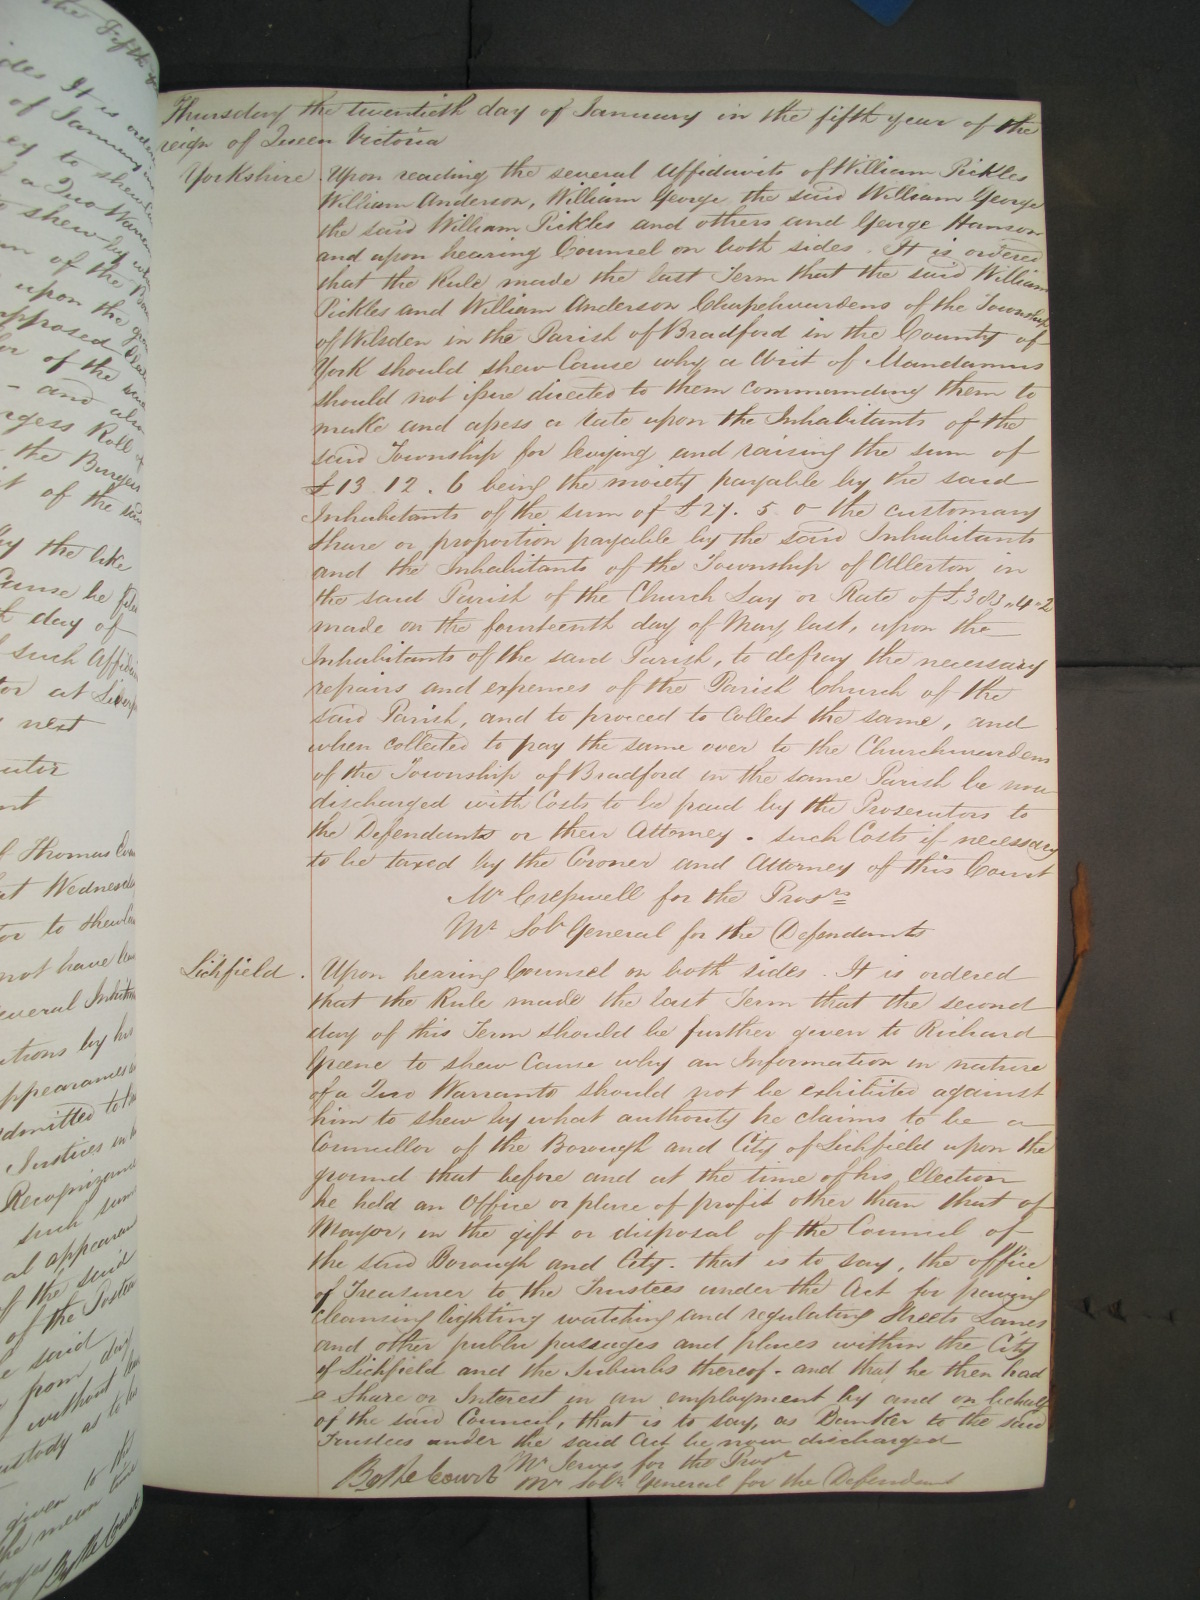 Thursday the twentieth day of January in the fifth year of the
reign of Queen Victoria
Yorkshire Upon reading the several Affidavits of William Pickles
William Anderson, William George the said William George
the said William Pickles and others and George Hanson
and upon hearing Counsel on both sides. It is ordered
that the Rule made the last Term that the said William
Pickles and William Anderson Chapelwardens of the Township
of Wilsden in the Parish of Bradford in the County of
York should shew Cause why a Writ of Mandamus
should not issue directed to them commanding them to
make and assess a rate upon the Inhabitants of the
said Township for levying and raising the sum of
£13. 12. 6 being the moiety payable by the said
Inhabitants of the sum of £27. 5. 0 the customary
share or proportion payable by the said Inhabitants
and the Inhabitants of the Township of Allerton in
the said Parish of the Church Lay or Rate of £383-4-2
made on the fourteenth day of May last, upon the
Inhabitants of the said Parish, to defray the necessary
repairs and expences of the Parish Church of the
said Parish, and to proceed to Collect the same, and
when collected to pay the same over to the Churchwardens
of the Township of Bradford in the same Parish be now
discharged with Costs to be paid by the Prosecutors to
the Defendants or their Attorney. such Costs if necessary
to be taxed by the Coroner and Attorney of this Court
Mr Cresswell for the Prosrs
Mr Solr General for the Defendants
Lichfield. Upon hearing Counsel on both sides. It is ordered
that the Rule made the last Term that the second
day of this Term should be further given to Richard
Greene to shew Cause why an Information in nature
of a Quo Warranto should not be exhibited against
him to shew by what authority he claims to be a
Councillor of the Borough and City of Lichfield upon the
ground that before and at the time of his Election
he held an Office or place of profit other than that of
Mayor, in the gift or disposal of the Council of
the said Borough and City. that is to say, the office
of Treasurer to the Trustees under the Act for paving
cleansing lighting watching and regulating Streets Lanes
and other public passages and places within the City
of Lichfield and the Suburbs thereof. and that he then had
a Share or Interest in an employment by and on behalf
of the said Council, that is to say, as Banker to the said
Trustees under the said Act be now discharged
Mr Jervis for the Prosr
By the Court Mr Solr General for the Defendant